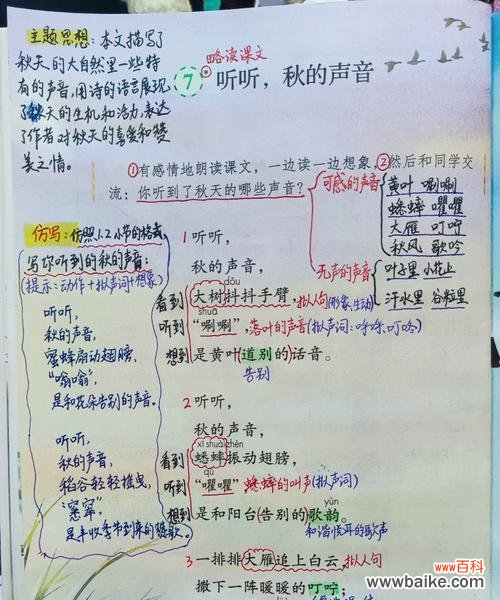 主题思想：本文描写了
秋天的大自然里一些特
有的声音，用诗的语言展现
了秋天的生机和活力，表达
了作者对秋天的喜爱和赞
美之情。
略读课文
7 听听，秋的声音
①有感情地朗读课文，一边读一边想象，②然后和同学交
流：你听到了秋天的哪些声音？
可感的声音
黄叶 唰唰
蟋蟀 㘗㘗
大雁 叮咛
秋风 歌吟
无声的声音
叶子里 小花上
汗水里 谷粒里
仿写：仿照1.2小节的格式，
写你听到的秋的声音：
(提示：动作+拟声词+想象)
听听，
秋的声音，
蜜蜂扇动翅膀，
“嗡嗡”，
是和花朵告别的声音。
听听，
秋的声音，
稻谷轻轻摇曳，
“窸窣”，
是丰收季节到来的赞歌。
1 听听，
秋的声音，
dǒu
看到 大树抖抖手臂，拟人句(形象、生动)
shuā
听到 “唰唰”，落叶的声音(拟声词：呼呼、叮咚)
想到 是黄叶(道别的)话音。
告别
2 听听，
秋的声音，
xī shuài zhèn
看到 蟋蟀振动翅膀，
qú
听到 “㘗㘗”，蟋蟀的叫声(拟声词)
yùn
想到 是和阳台(告别的)歌韵。
和谐悦耳的歌声
3 一排排大雁追上白云，拟人句
撒下一阵暖暖的叮咛；
www.百科
www.baike.com